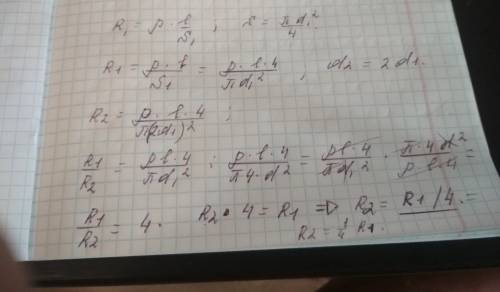 R₁ = ρ · l/S₁ ; S = πd₁²/4.
R1 = ρ·l/S1 = ρ·l·4/πd₁² ; d2 = 2d1.
R2 = ρ·l·4/π(2d1)² ;
R1/R2 = ρl·4/πd₁² : ρ·l·4/π4·d² = ρl·4/πd₁² · π·4d²/ρl·4 =
R1/R2 = 4. R2 · 4 = R1 ⇒ R2 = R1/4.=
R2 = 1/4 R1.